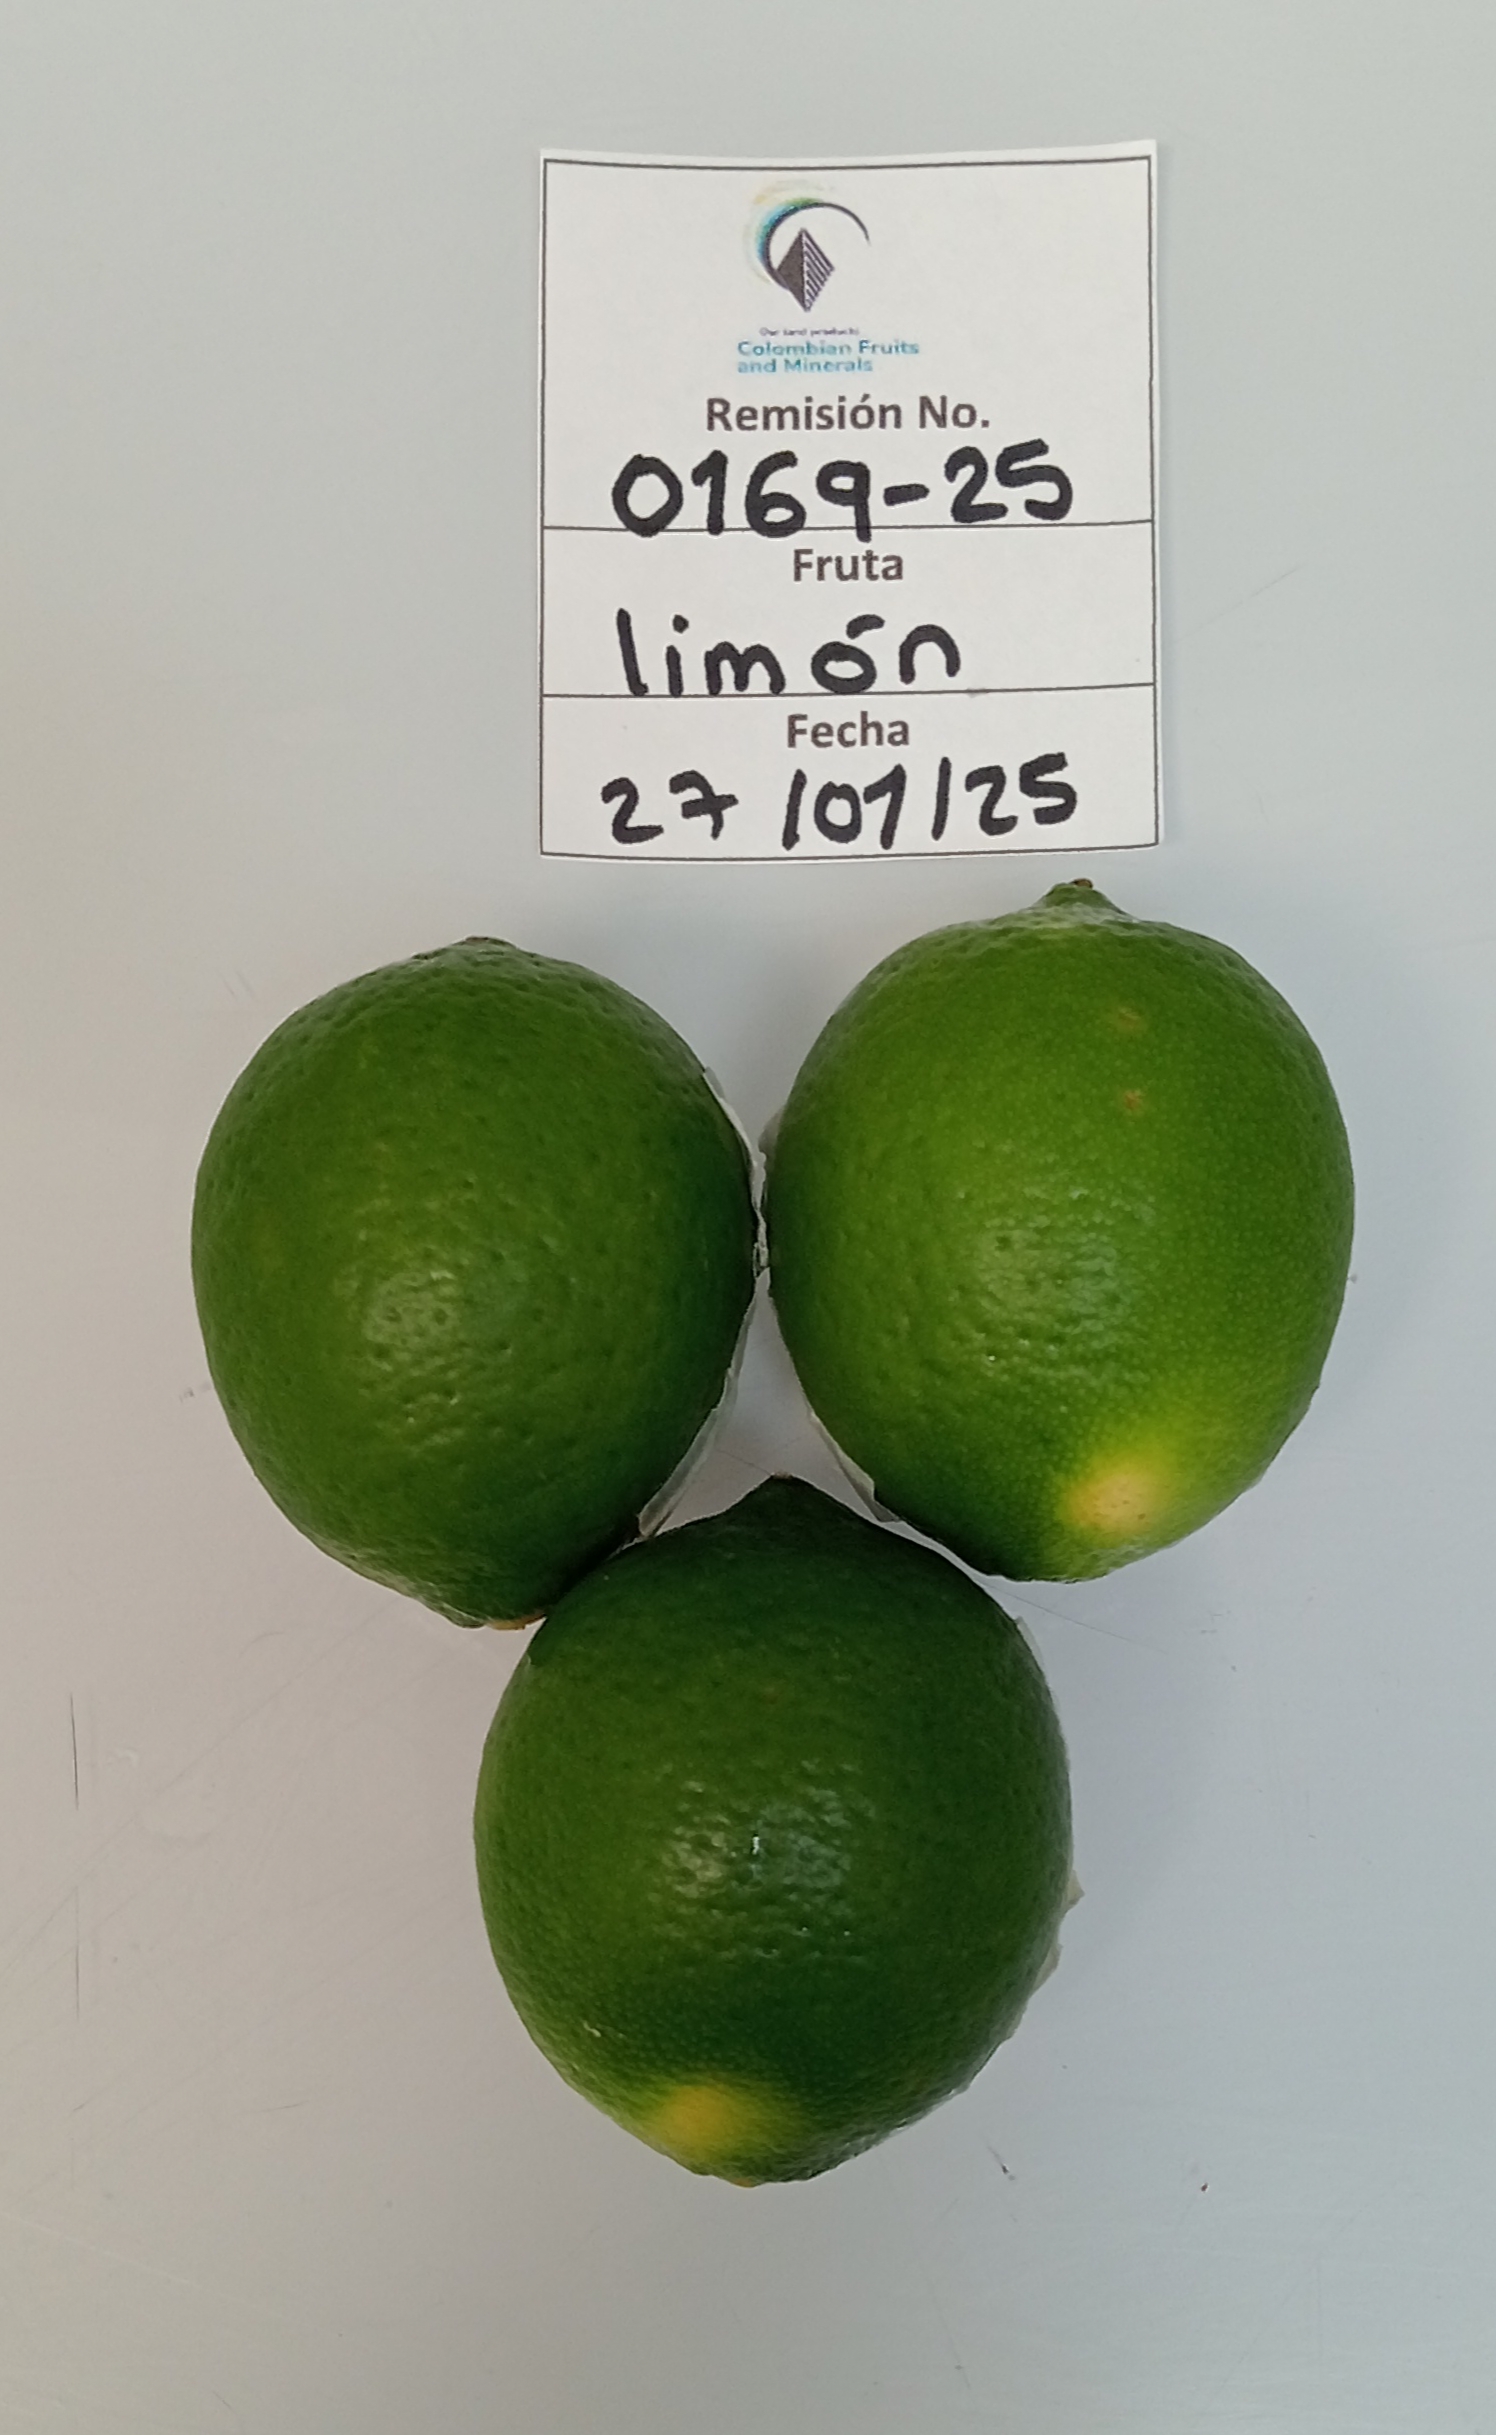 Our land products
Colombian Fruits
and Minerals
Remisión No.
0169-25
Fruta
limón
Fecha
27/01/25